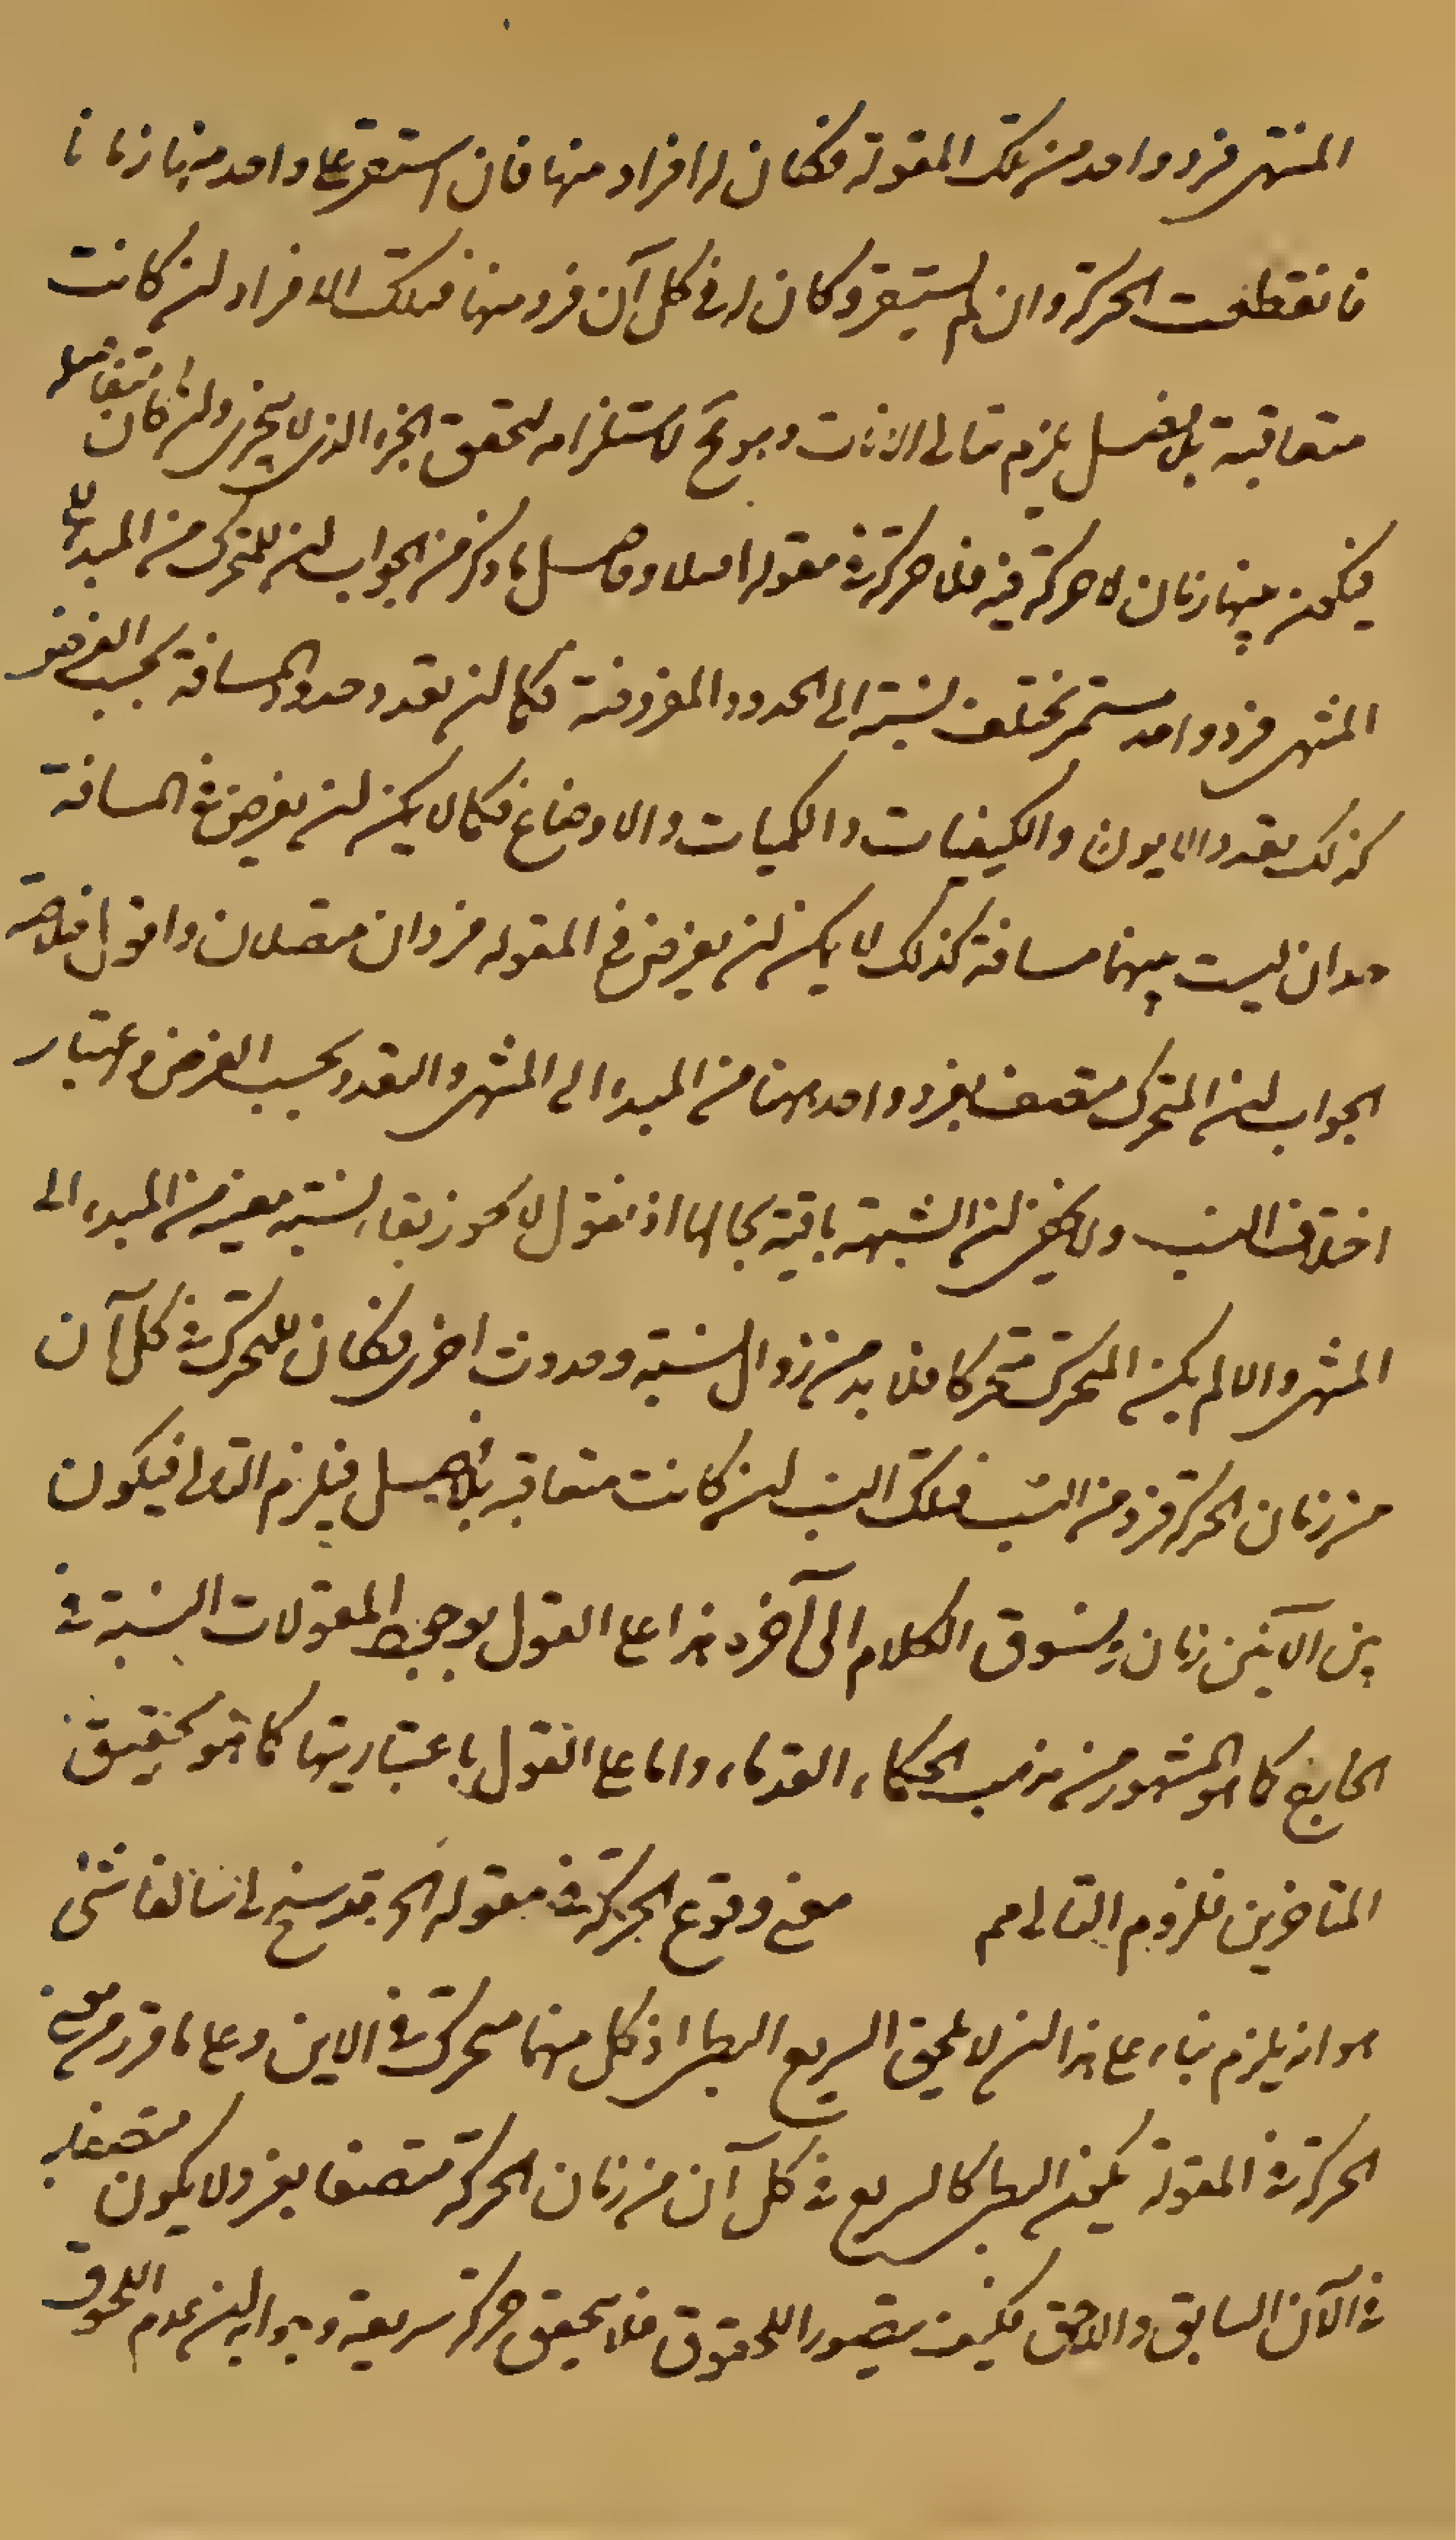 المنتهى فرد واحد من تلك المقولة فكان له افراد منها فان استقر على واحد منها زمانا
فانقطعت الحركة وان لم يستقر وكان له في كل آن فرد منها فتلك الافراد ان كانت
متعاقبة بلا فصل يلزم تتالي الآنات وهو مح لاستلزامه لتحقق الجزء الذي لا يتجزى وان كان بينها تفاصل
فيكون بينها زمان لا حركة فيه فلا حركة في مقولة اصلا وحاصل ما ذكر من الجواب ان للمتحرك من المبدا الى
المنتهى فرد واحد مستمر تختلف نسبته الى الحدود المفروضة فكما ان تعدد حدود المسافة بحسب الفرض
كذلك تعدد الايون والكيفيات والكميات والاوضاع فكما لا يمكن ان يفرض في المسافة
حدان ليست بينهما مسافة كذلك لا يمكن ان يفرض في المقولة فردان متصلان واقول خلاصة
الجواب ان المتحرك متصف بفرد واحد منها من المبدا الى المنتهى والتعدد بحسب الفرض واعتبار
اختلاف النسب ولا يخفى ان الشبهة باقية بحالها اذ نقول لا يجوز بقاء نسبة معينة من المبدا الى
المنتهى والا لم يكن المتحرك متحركا فلا بد من زوال نسبة وحدوث اخرى فكان للمتحرك في كل آن
من زمان الحركة فرد من النسب فتلك النسب ان كانت متعاقبة بلا فصل فيلزم التتالي فيكون
بين الآنين زمان ونسوق الكلام الى آخره هذا على القول بوجود المقولات النسبية في
الخارج كما هو المشهور من مذهب الحكماء القدماء واما على القول باعتباريتها كما هو تحقيق
المتاخرين فلزوم التتالي مم معنى وقوع الحركة في مقولة الخ قد سنح لنا شئ
هو انه يلزم بناء على هذا ان لا يلحق السريع البطئ اذ كل منهما متحرك في الاين وعلى ما قرر من معنى
الحركة في المقولة يكون البطئ كالسريع في كل آن من زمان الحركة متصفا بفرد لا يكون متصفا به
في الآن السابق واللاحق فكيف يتصور اللحوق فلا يتحقق حركة سريعة وجوابه ان عدم اللحوق